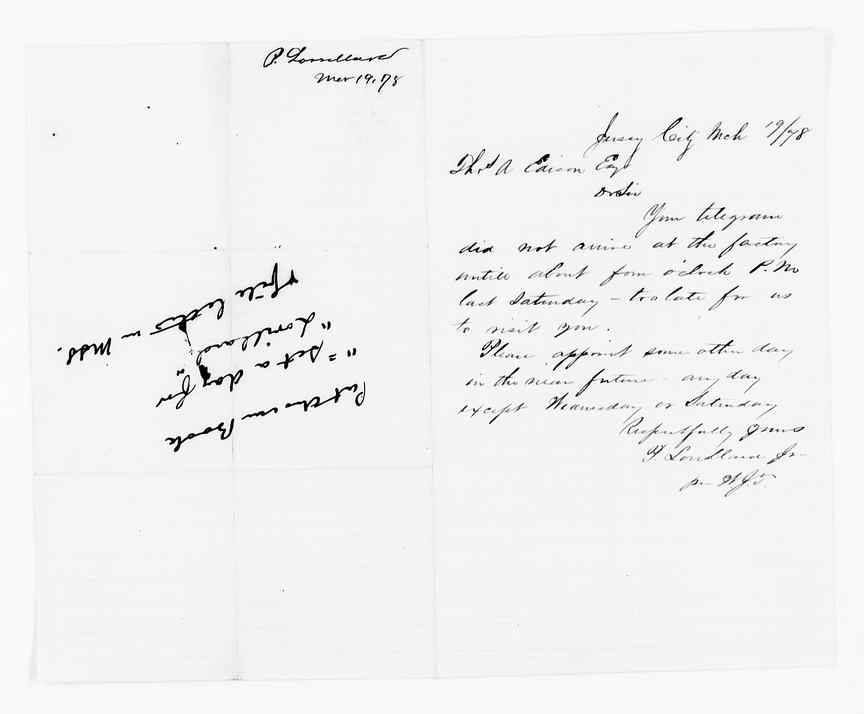 P. Lorillard
Mar 19, 78
Put this in Book
"set a day for
"Lorillard"
& file letter in Mdd.
Jersey City Mch 19/78
Thos A Edison Esq
Dr Sir
Your telegram
did not arrive at the factory
untill about four o'clock P.M
last Saturday – to late for us
to visit you.
Please appoint some other day
in the near future – any day
except Wednesday or Saturday
Respectfully Yours
P Lorillard Jr
per